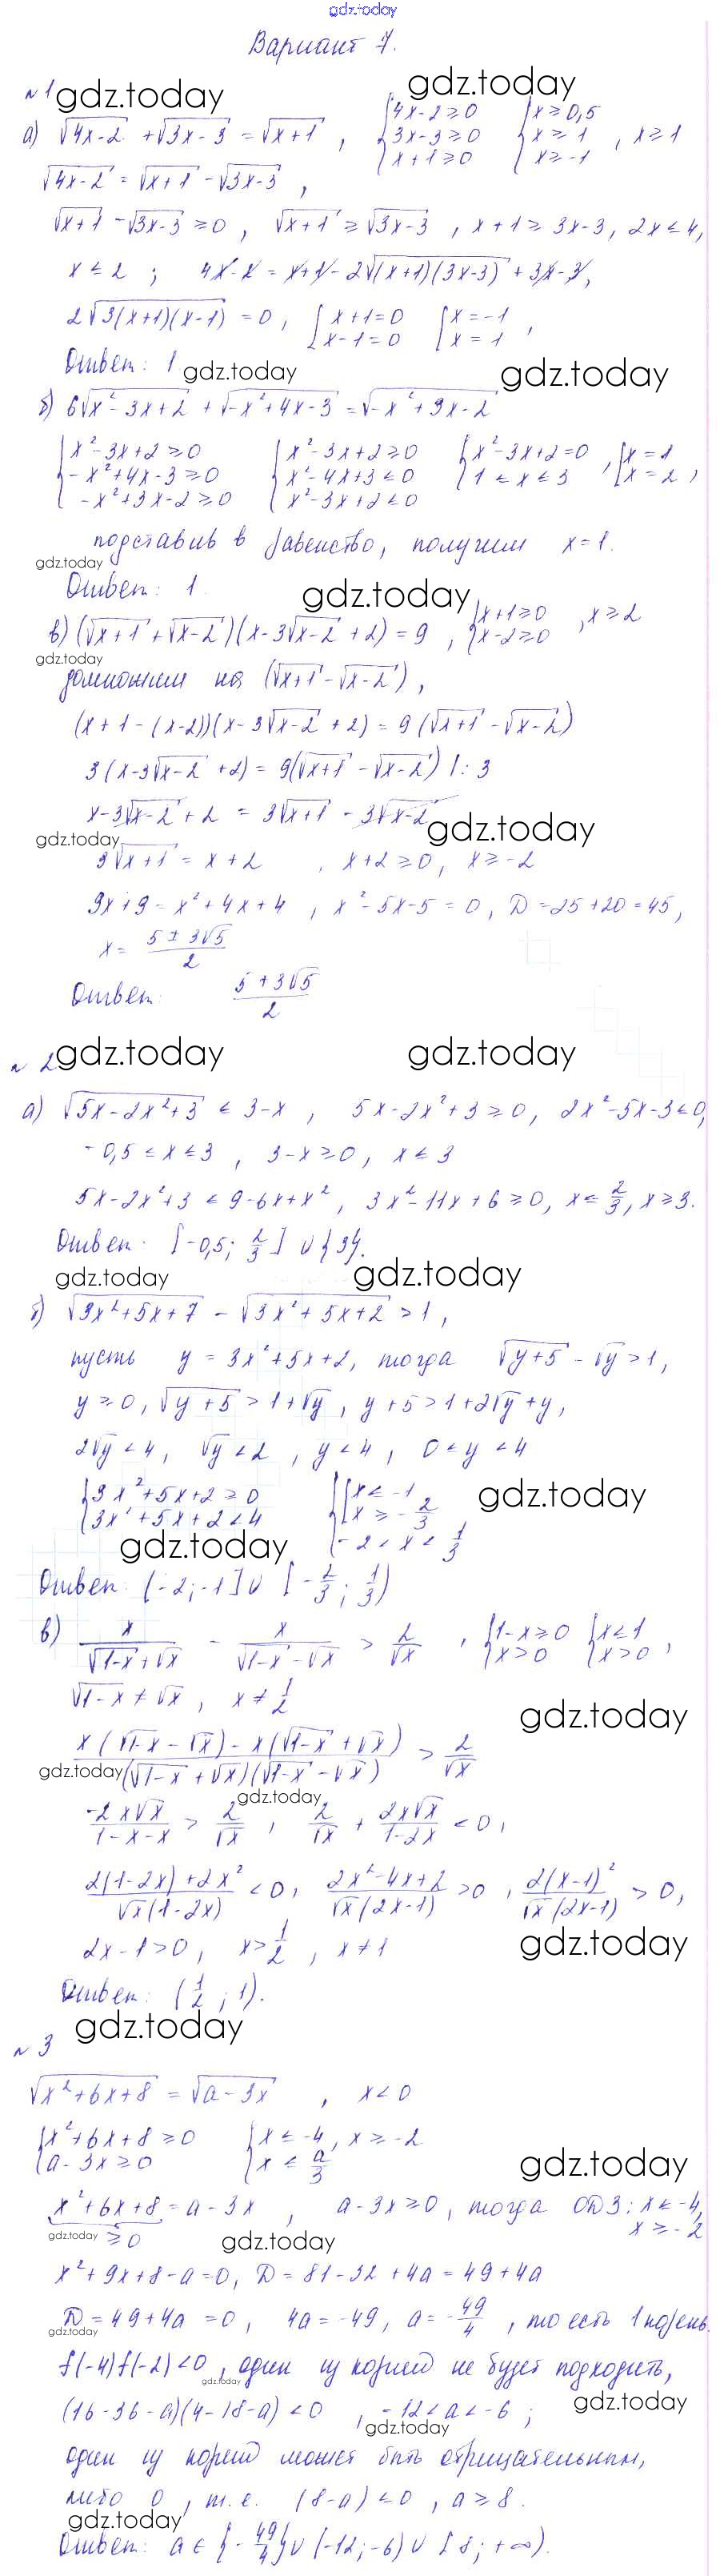 gdz.today
Вариант 7.
№1 gdz.today gdz.today
а) √(4x-2) + √(3x-3) = √(x+1) , { 4x-2≥0 3x-3≥0 x+1≥0 { x≥0,5 x≥1 x≥-1 , x≥1
√(4x-2) = √(x+1) - √(3x-3) ,
√(x+1) - √(3x-3) ≥0 , √(x+1) ≥ √(3x-3) , x+1≥3x-3, 2x≤4,
x≤2 ; 4x-2 = x+1-2√((x+1)(3x-3)) + 3x-3,
2√(3(x+1)(x-1)) = 0, [ x+1=0 x-1=0 [ x=-1 x=1 ,
Ответ: 1 gdz.today gdz.today
б) 6√(x²-3x+2) + √(-x²+4x-3) = √(-x²+3x-2)
{ x²-3x+2≥0 -x²+4x-3≥0 -x²+3x-2≥0 { x²-3x+2≥0 x²-4x+3≤0 x²-3x+2≤0 { x²-3x+2=0 1≤x≤3 , [ x=1 x=2 ,
подставив в равенство, получим x=1.
gdz.today
Ответ: 1. gdz.today
в) (√(x+1) + √(x-2))(x-3√(x-2)+2) = 9 , { x+1≥0 x-2≥0 , x≥2
gdz.today
домножим на (√(x+1) - √(x-2)) ,
(x+1-(x-2))(x-3√(x-2)+2) = 9(√(x+1) - √(x-2))
3(x-3√(x-2)+2) = 9(√(x+1) - √(x-2)) |:3
x-3√(x-2)+2 = 3√(x+1) - 3√(x-2) gdz.today
gdz.today
3√(x+1) = x+2 , x+2≥0, x≥-2
9x+9 = x²+4x+4 , x²-5x-5=0, D=25+20=45,
x = (5±3√5)/2
Ответ: (5+3√5)/2
№ 2 gdz.today gdz.today
а) √(5x-2x²+3) ≤ 3-x , 5x-2x²+3≥0, 2x²-5x-3≤0,
-0,5≤x≤3 , 3-x≥0, x≤3
5x-2x²+3 ≤ 9-6x+x² , 3x²-11x+6≥0, x≤2/3, x≥3.
Ответ: [-0,5; 2/3] ∪ {3}.
gdz.today gdz.today
б) √(3x²+5x+7) - √(3x²+5x+2) >1 ,
пусть y = 3x²+5x+2, тогда √(y+5) - √y >1,
y≥0, √(y+5) > 1+√y , y+5>1+2√y+y,
2√y<4, √y<2 , y<4 , 0≤y<4
{ 3x²+5x+2≥0 3x²+5x+2<4 { [ x≤-1 x≥-2/3 -2<x<1/3 gdz.today
gdz.today
Ответ: (-2;-1] ∪ [-2/3; 1/3)
в) x/(√(1-x)+√x) - x/(√(1-x)-√x) > 2/√x , { 1-x≥0 x>0 { x≤1 x>0 ,
√(1-x) ≠ √x , x≠1/2 gdz.today
(x(√(1-x)-√x) - x(√(1-x)+√x))/((√(1-x)+√x)(√(1-x)-√x)) > 2/√x
gdz.today gdz.today
-2x√x/(1-x-x) > 2/√x , 2/√x + 2x√x/(1-2x) <0,
(2(1-2x)+2x²)/(√x(1-2x)) <0, (2x²-4x+2)/(√x(2x-1)) >0 , 2(x-1)²/(√x(2x-1)) >0,
2x-1>0, x>1/2 , x≠1 gdz.today
Ответ: (1/2; 1).
№ 3 gdz.today
√(x²+6x+8) = √(a-3x) , x<0
{ x²+6x+8≥0 a-3x≥0 { x≤-4, x≥-2 x≤a/3 gdz.today
x²+6x+8 = a-3x , a-3x≥0, тогда ОДЗ: x≤-4, x≥-2
gdz.today ≥0 gdz.today
x²+9x+8-a=0, D=81-32+4a=49+4a
D=49+4a=0, 4a=-49, a=-49/4 , то есть 1 корень.
gdz.today
f(-4)f(-2)<0 , один из корней не будет подходить,
gdz.today
(16-36-a)(4-18-a)<0 , -12<a<-6 ; gdz.today
gdz.today
один из корней может быть отрицательным,
либо 0 , т.е. (8-a)≤0 , a≥8.
gdz.today
Ответ: a∈{-49/4} ∪ (-12;-6) ∪ [8;+∞).